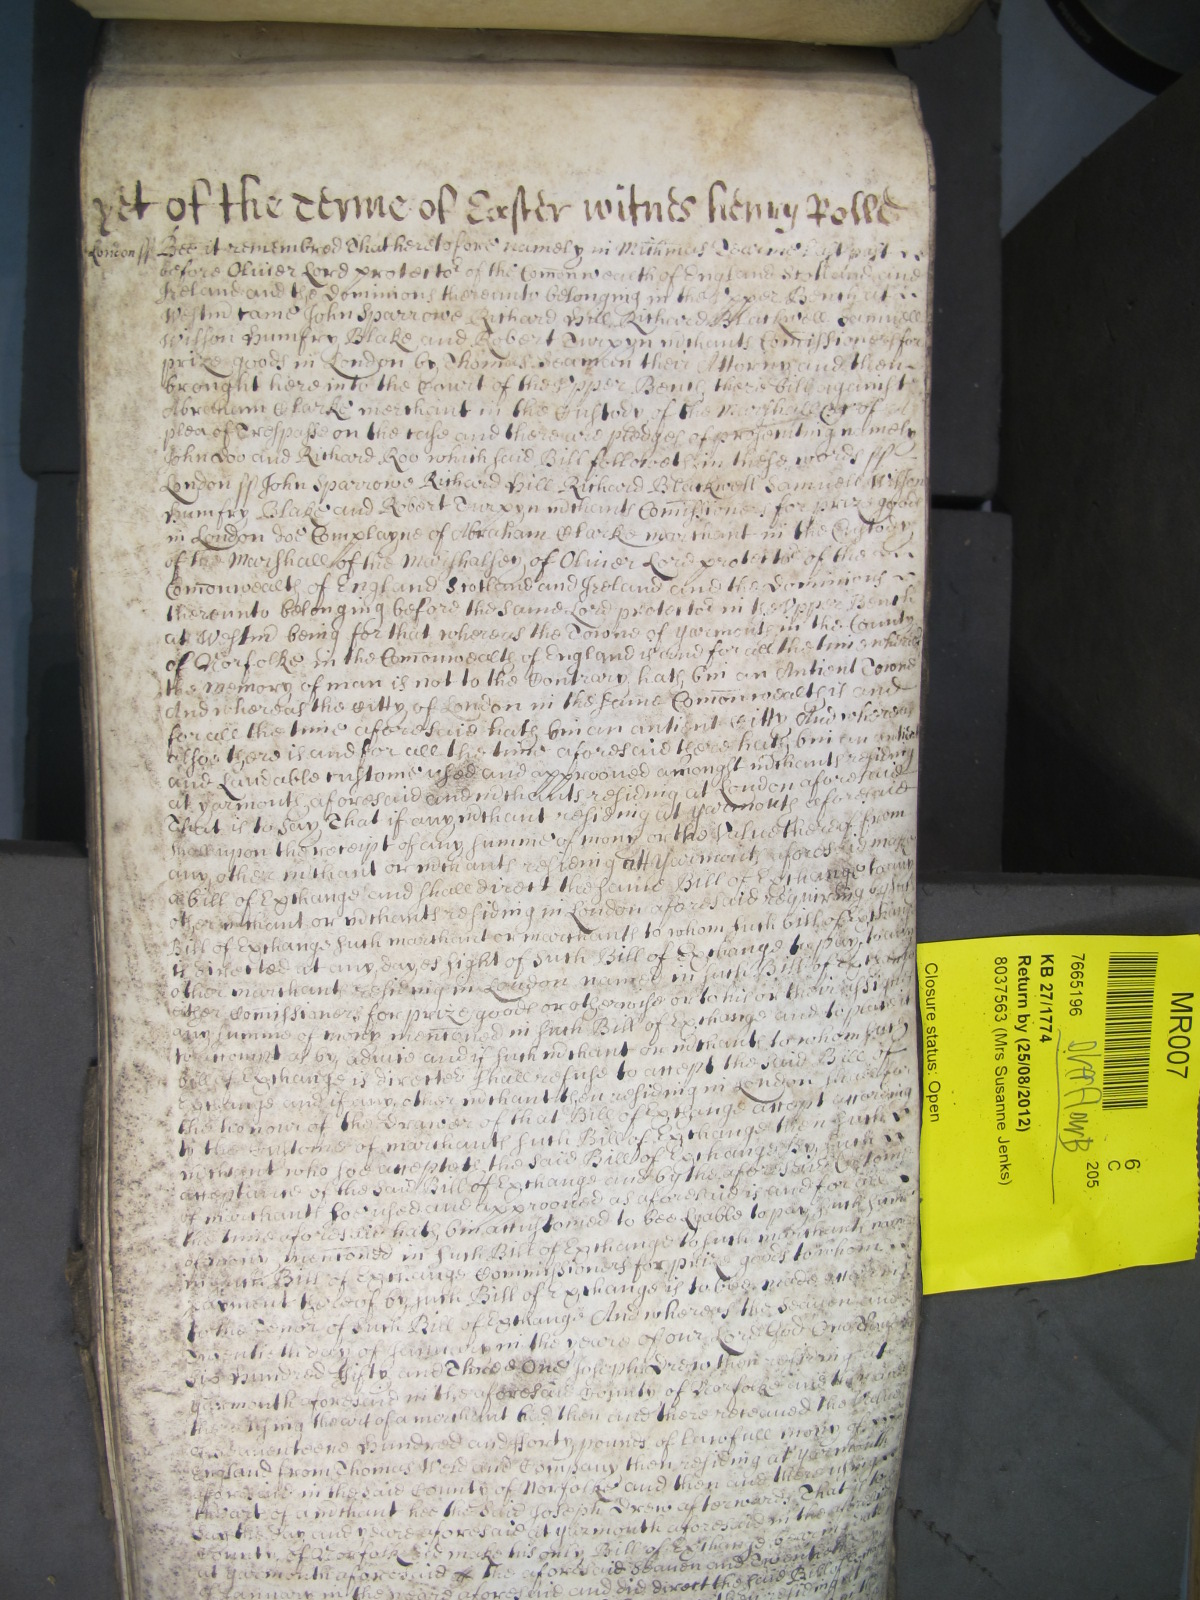 yet of the Terme of Easter witnes henry Rolle
London ss Bee it remembred That heretofore namely in Michmas Tearme last past
before Oliver Lord protector of the Comonwealth of England Scotland and
Ireland and the Dominions thereunto belonging in the Upper Bench at
Westm came John Sparrowe Richard Hill Richard Blackwell Samuell
Wilson Humfry Blake and Robert Turpyn mchants Comissioners for
prize goods in London by Thomas their Attorny and then
brought here into the Court of the Upper Bench theire bill against
Abraham Clarke merchant in the Custody of the Marshall of
plea of Trespasse on the case and there are pledges of prosecuting namely
John Doo and Richard Roo which said Bill followeth in these words ss
London ss John Sparrowe Richard Hill Richard Blackwell Samuell Wilson
Humfry Blake and Robert Turpyn mchants Comissioners for prize goods
in London doe Complayne of Abraham Clarke merchant in the Custody
of the Marshall of the Marshalsey of Oliver Lord protector of the
Comonwealth of England Scotland and Ireland and the Dominions
thereunto belonging before the same Lord protector in the Upper Bench
at Westm being for that whereas the Towne of Yarmouth in the County
of Norfolke in the Comonwealth of England is and for all the time whereof
the memory of man is not to the Contrary hath bin an Antient Towne
And whereas the Citty of London in the same Comonwealth is and
for all the time aforesaid hath bin an antient Citty And whereas
alsoe there is and for all the time aforesaid there hath bin an antient
and Laudable custome used and approoved amongst mchants residing
at Yarmouth aforesaid and mchants residing at London aforesaid
That is to say That if any mchant residing at Yarmouth aforesaid
shall upon the receipt of any summe of mony or the value thereof from
any other mchant or mchants residing att Yarmouth aforesaid make
a bill of Exchange and shall direct the same Bill of Exchange to any
other mchant or mchants residing in London aforesaid requiring by
Bill of Exchange such marchant or marchants to whom such bill of Exchange
is directed at any dayes sight of such Bill of Exchange to pay to any
other marchant residing in London named in such Bill of Exchange
either Comissioners for prize goods or otherwise or to his or their assignes
any summe of mony mentioned in such Bill of Exchange and to place it
to account as by advice and if such mchant or mchants to whom such
bill of Exchange is directed shall refuse to accept the said Bill of
Exchange and if any other mchant then residing in London
the honour of the drawer of that Bill of Exchange accept according
to the Custome of marchants such Bill of Exchange then such
mchant who soe accepteth the said Bill of Exchange By such
acceptance of the said Bill of Exchange and by the aforesaid Custome
of marchants soe used and approoved as aforesaid is and for all
the time aforesaid hath bin accustomed to bee Lyable to pay such summe
of mony mentioned in such Bill of Exchange to such merchants
in such Bill of Exchange Commissioners for prize goods to whom
payment thereof by such Bill of Exchange is to bee made according
to the Tenor of such Bill of Exchange And whereas the Seaven and
twentieth day of January in the yeare of our Lord God One thousand
six hundred fifty and Three One Joseph Drew then residing at
Yarmouth aforesaid in the aforesaid County of Norfolke and
then using the art of a merchant had then and there received the value
of Seaventeene hundred and fforty pounds of lawfull mony of
England from Thomas Weld and Company then residing at Yarmouth
aforesaid in the said County of Norfolke and then and there using
the art of a mchant hee the said Joseph Drew afterwards That is to
say the day and yeare aforesaid at Yarmouth aforesaid in the aforesaid
County of Norfolk did make his only Bill of Exchange
at Yarmouth aforesaid the aforesaid Seaven and Twentieth
of January in the yeare aforesaid and did direct the said Bill of
MR007
6
C
205
7665196
KB 27/1774
Return by (25/08/2012)
8037563 (Mrs Susanne Jenks)
Closure status: Open